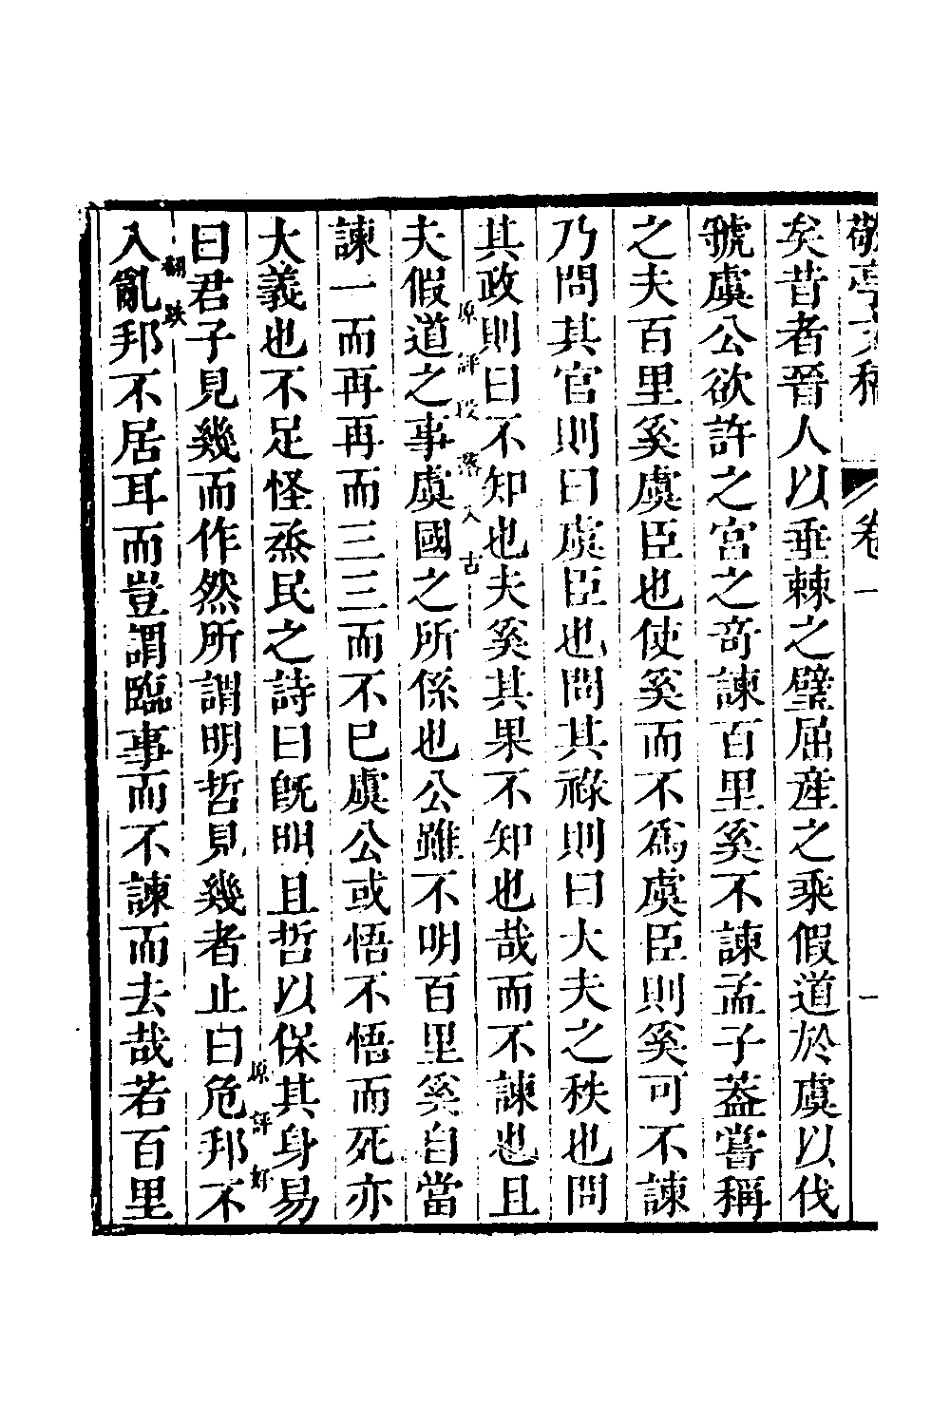 敬亭文稿 卷一 一
矣昔者晉人以垂棘之璧屈產之乘假道於虞以伐
虢虞公欲許之宮之奇諫百里奚不諫孟子葢嘗稱
之夫百里奚虞臣也使奚而不爲虞臣則奚可不諫
乃問其官則曰虞臣也問其祿則曰大夫之秩也問
其政則曰不知也夫奚其果不知也哉而不諫也且
原評段落入古
夫假道之事虞國之所係也公雖不明百里奚自當
諫一而再再而三三而不已虞公或悟不悟而死亦
大義也不足怪烝民之詩曰旣明且哲以保其身易
原評好
曰君子見幾而作然所謂明哲見幾者止曰危邦不
翻跌
入亂邦不居耳而豈謂臨事而不諫而去哉若百里